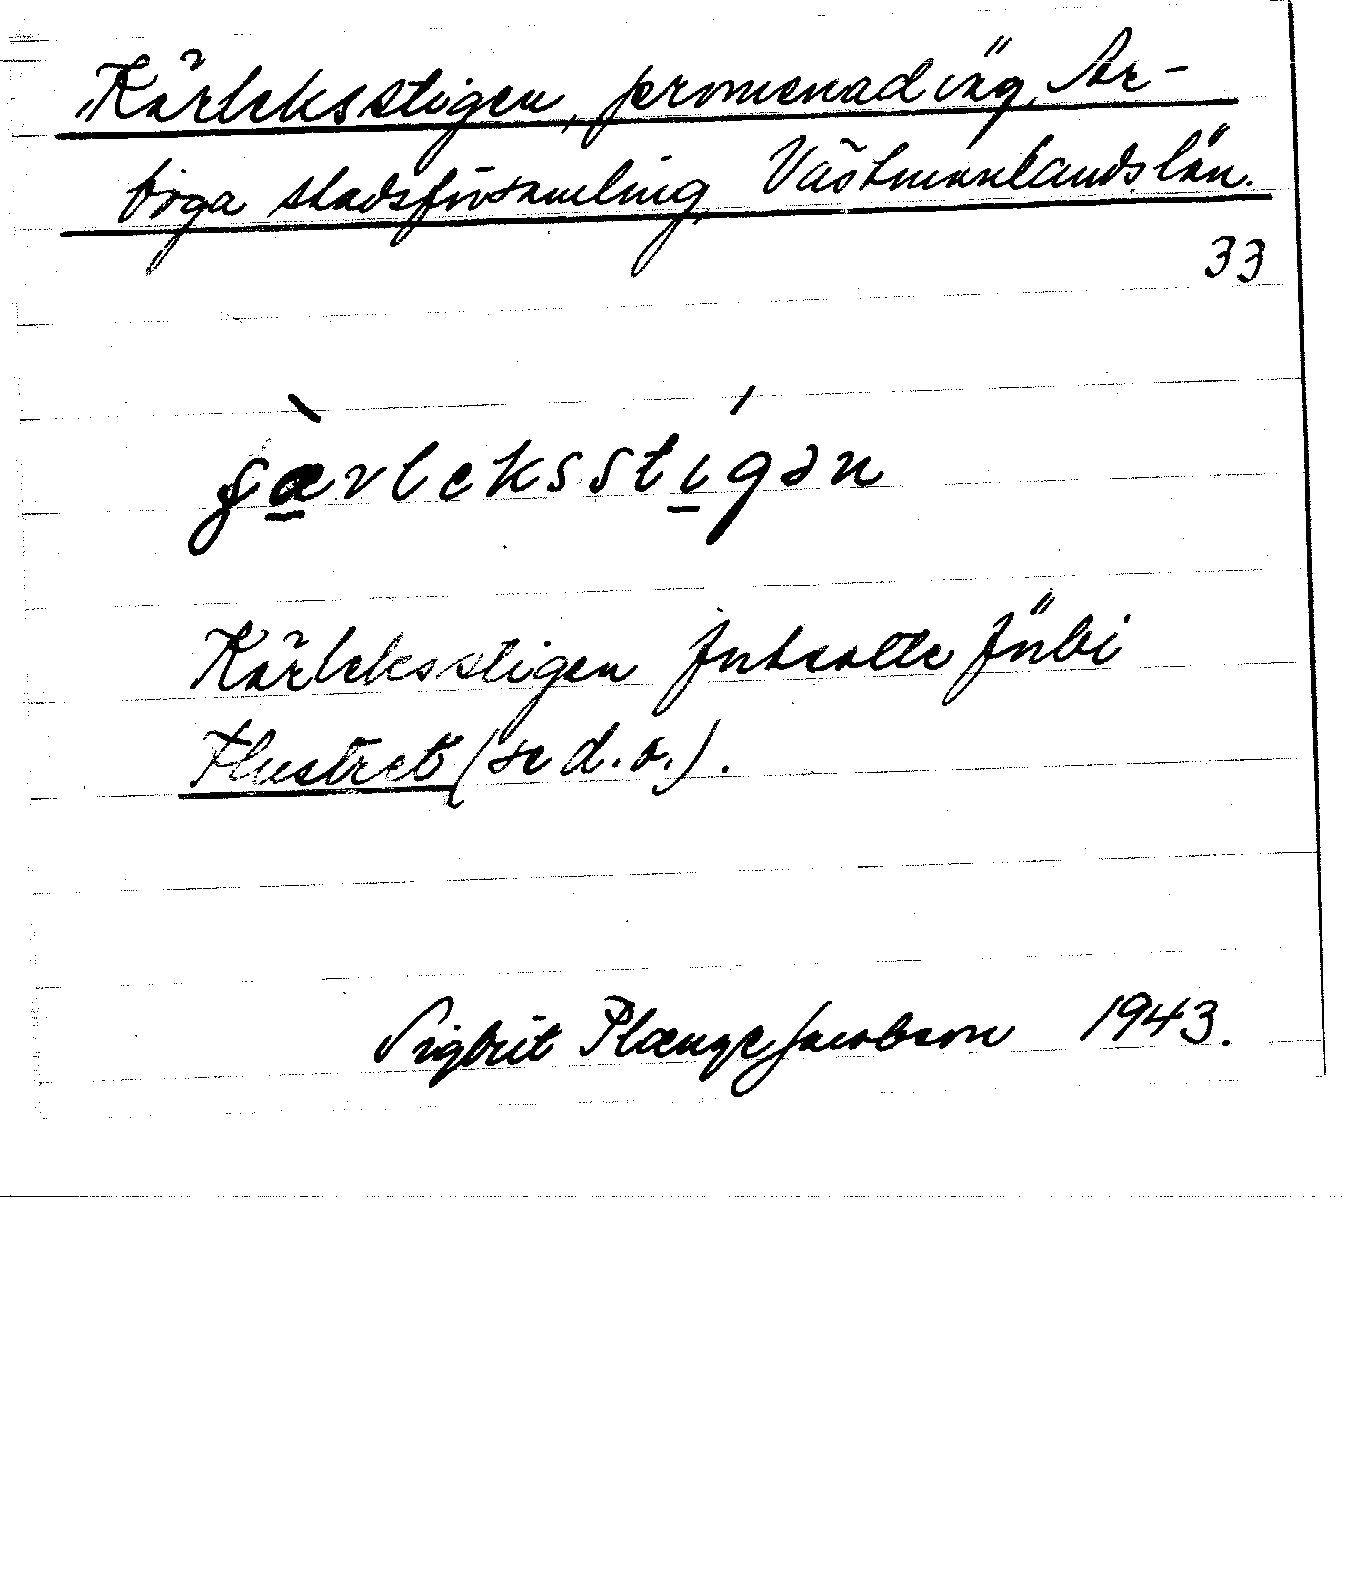 Kärleksstigen, promenadväg, Ar-
boga stadsförsamling, Västmanlands län.
33
ɕæ̀rleksstígən
Kärleksstigen fortsatte förbi
Flustret (se d. o.).
Sigbrit Plænge Jacobson 1943.